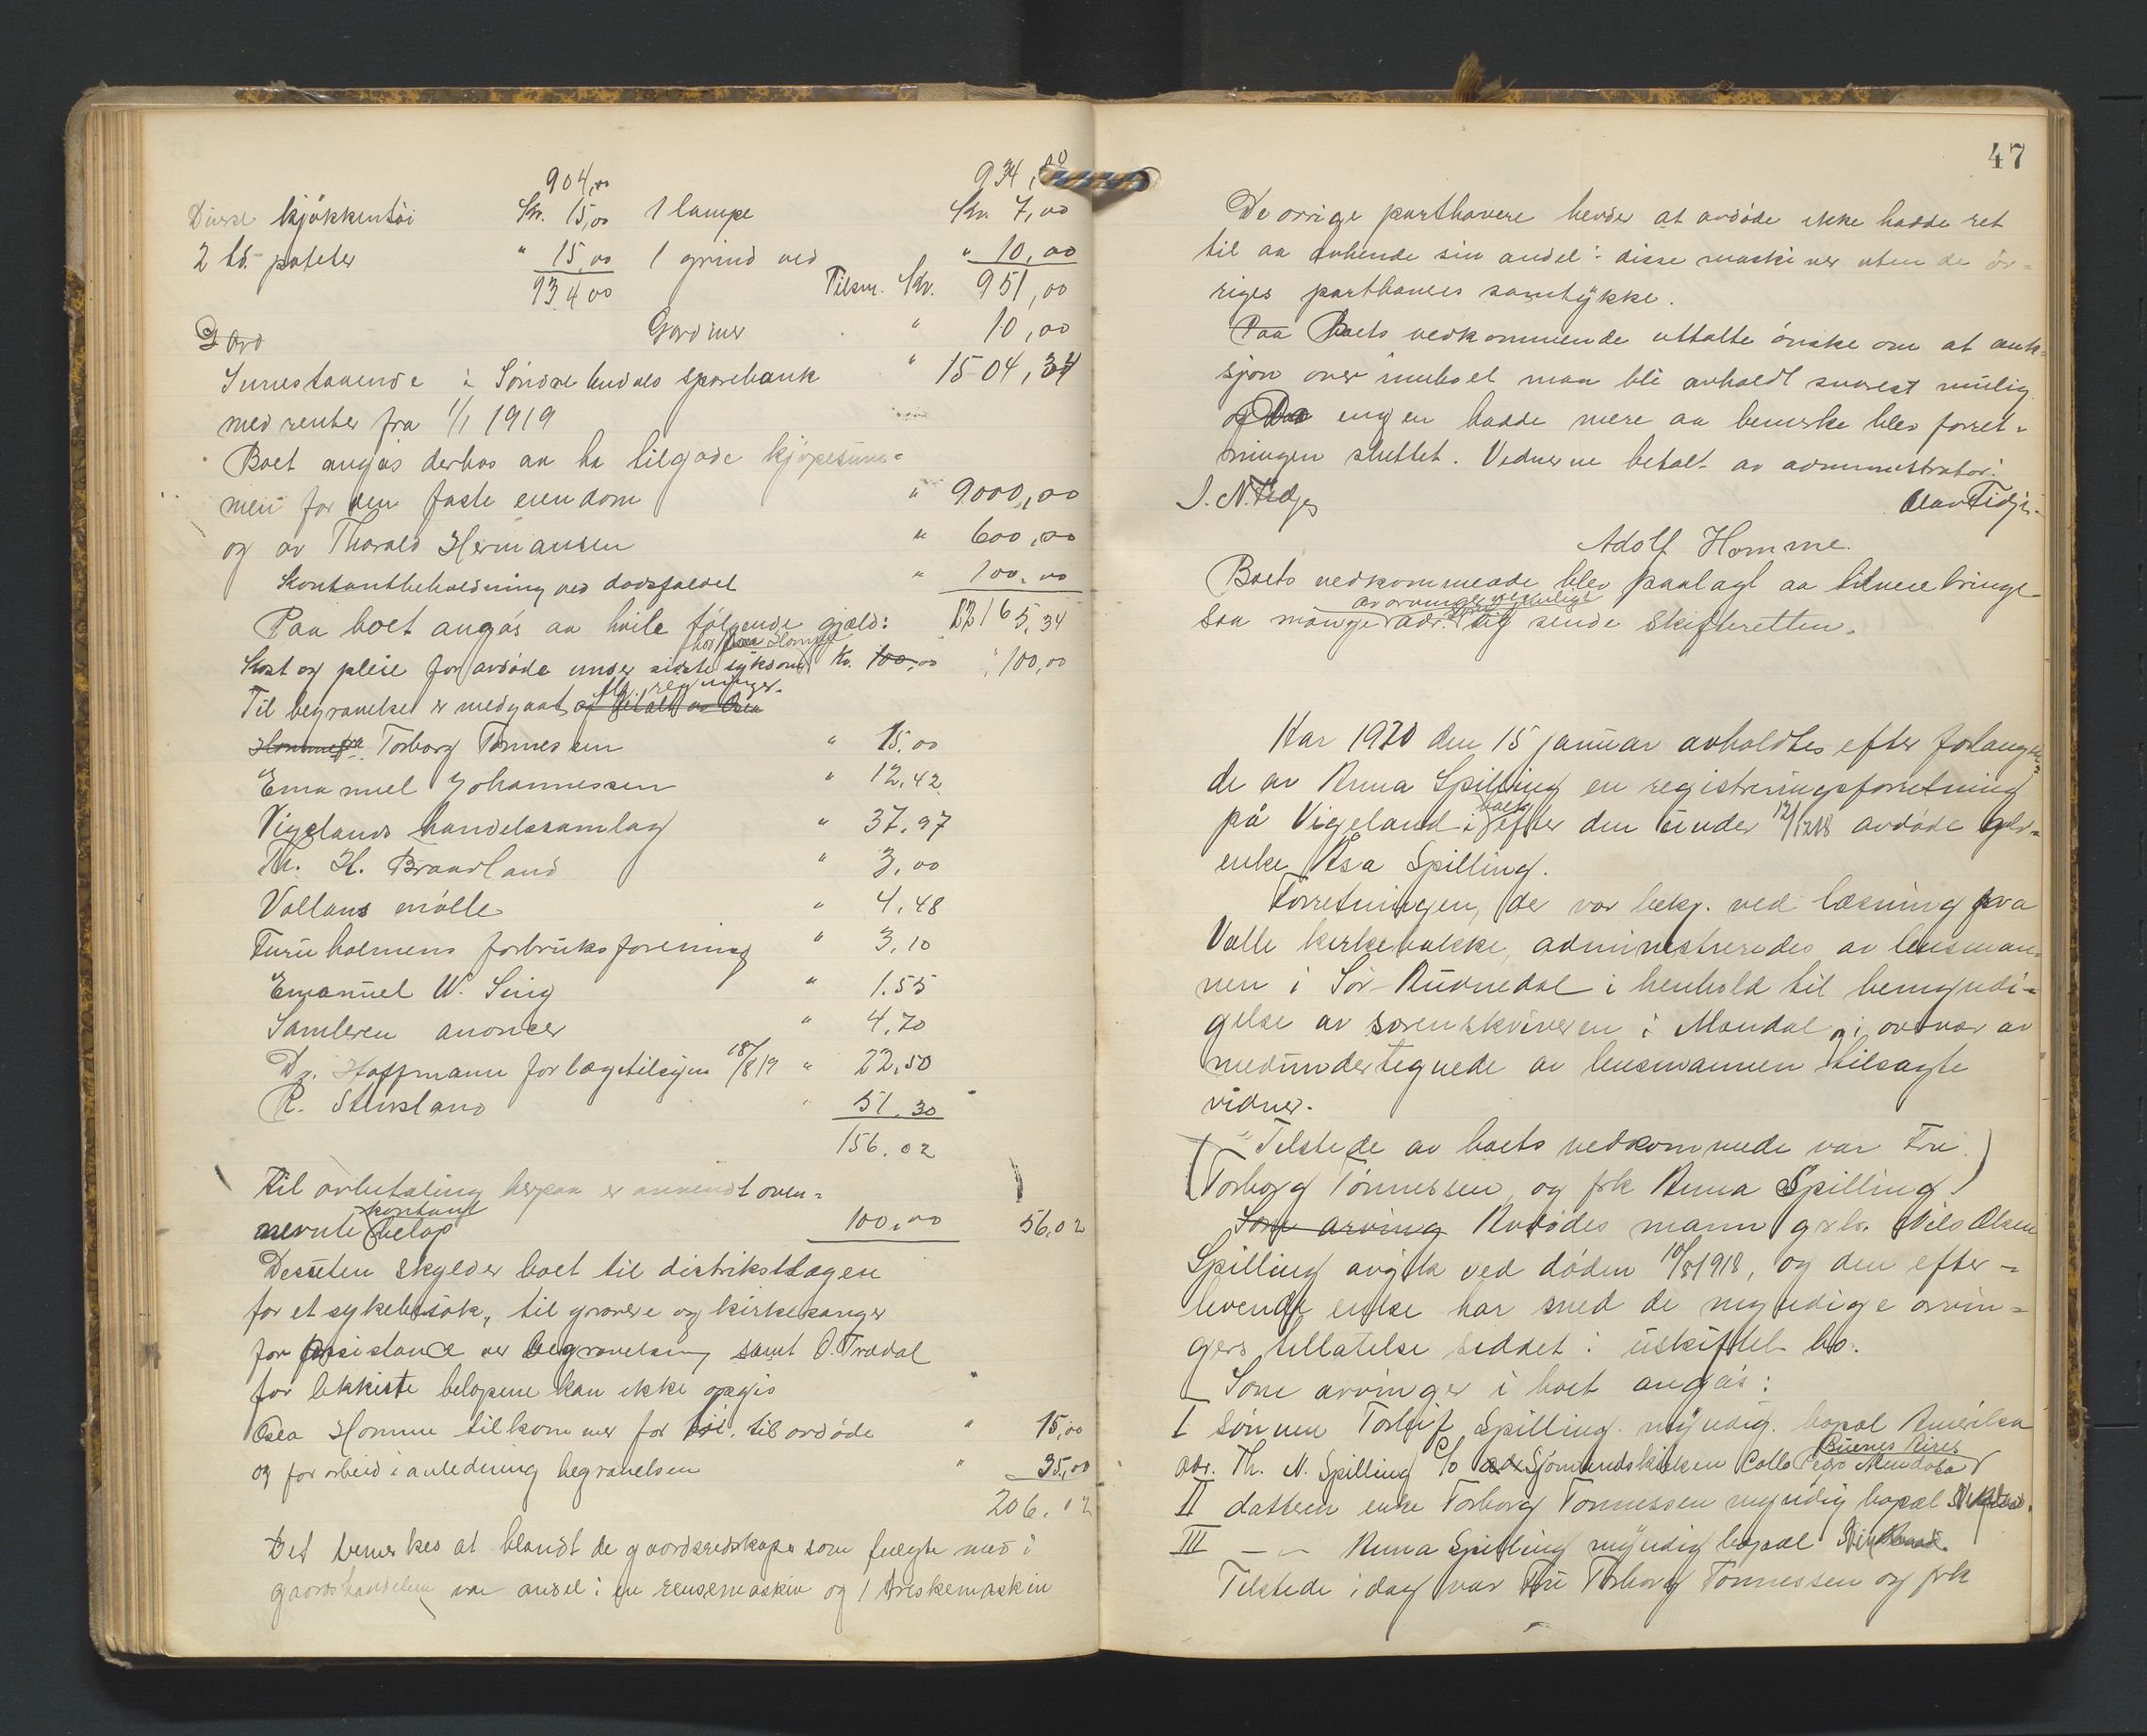 904,00 934,00
Diverse kjøkkentøi Kr. 15,00 1 lampe Kr. 7,00
2 td. poteter " 15,00 1 grind ved " 10,00
934,00 Tilsm. Kr. 951,00
Gardiner " 10,00
Innestaaende i Søndre Undals sparebank " 1504,34
med renter fra 1/1 1919
Boet angås derhos aa ha tilgode kjøpesum=
men for den faste eiendom " 9000,00
og av Thorald Hermansen " 600,00
Kontantbeholdning ved dødsfaldet " 100,00
Paa boet angås aa hvile følgende gjæld: 12165,34
hos Osea Homme
Kost og pleie for avdøde under sidste sykdom Kr. 100,00 " 100,00
flg. regninger.
Til begravelse er medgaat og betalt av Osea
Homme Torborg Tønnessen " 15,00
Emanuel Johannessen " 12,42
Vigelands handelssamlag " 37,97
Th. H. Braadland " 3,00
Vallans mølle " 4,48
Furuholmens forbruksforening " 3,10
Emanuel W. Sing " 1.55
Samleren anoncer " 4,70
Dr. Hoffmann for lægetilsyn 18/8 19 " 22,50
R. Stensland " 51.30
156.02
Til avbetaling herpaa er anvendt oven=
kontant
nevnte beløp 100,00 56,02
Desuten skylder boet til distriktslægen
for et sykebesøk, til gravere og kirkesanger
for assistance ved begravelsen, samt O. Trædal
for likkiste beløpene kan ikke opgis "
Osea Homme tilkommer for tøi til avdøde " 15,00
og for arbeid i anledning begravelsen " 35,00
206.02
Det bemerkes at blandt de gaardsredskaper som fulgte med i
gaardshandelen var andel i en rensemaskin og 1 treskemaskin
47
De øvrige parthavere hevder at avdøde ikke hadde ret
til aa avhende sin andel i disse maskiner uten de øv=
riges parthaveres samtykke.
Paa Boets vedkommende uttalte ønske om at auk=
sjon over innboet maa bli avholdt snarest mulig
og Da engen hadde mere aa bemerke blev forret=
ningen sluttet. Vidnerne betalt av administrator.
J. N. Tidjes Olav Fidje.
Adolf Homme.
Boets vedkommende blev paalagt aa tilveiebringe
saa mange adr. sende skifteretten.
Aar 1920 den 15 januar avholdtes efter forlangen=
de av Anna Spilling en registreringsforretning
boet
på Vigeland i efter den under 12/12 18 avdøde gdr=
enke Åsa Spilling.
Forretningen, der var bekj. ved læsning fra
Valle kirkebakke, administreredes av lensman=
nen i Sør-Audnedal i henhold til bemyndi=
gelse av sorenskriveren i Mandal, i overvær av
medundertegnede av lensmannen tilsagte
vidner.
(Tilstede av boets vedkommende var Fru
Torborg Tønnessen og frk Anna Spilling.)
Som arving Avdødes mann grbr. Nils Olsen
Spilling avgik ved døden 10/8 1918, og den efter=
levende enke har med de myndige arvin=
gers tillatelse siddet i uskiftet bo.
Som arvinger i boet angås:
I sønnen Torleif Spilling myndig. bopæl Amerika
Buenos Aires
adr. Th. N. Spilling c/o adr Sjømandskirken Calle Pedro Mendosa
II datteren enke Torborg Tønnessen myndig bopæl Vigeland.
III – " – Anna Spilling myndig bopæl
Tilstede idag var Fru Torborg Tønnessen og frk